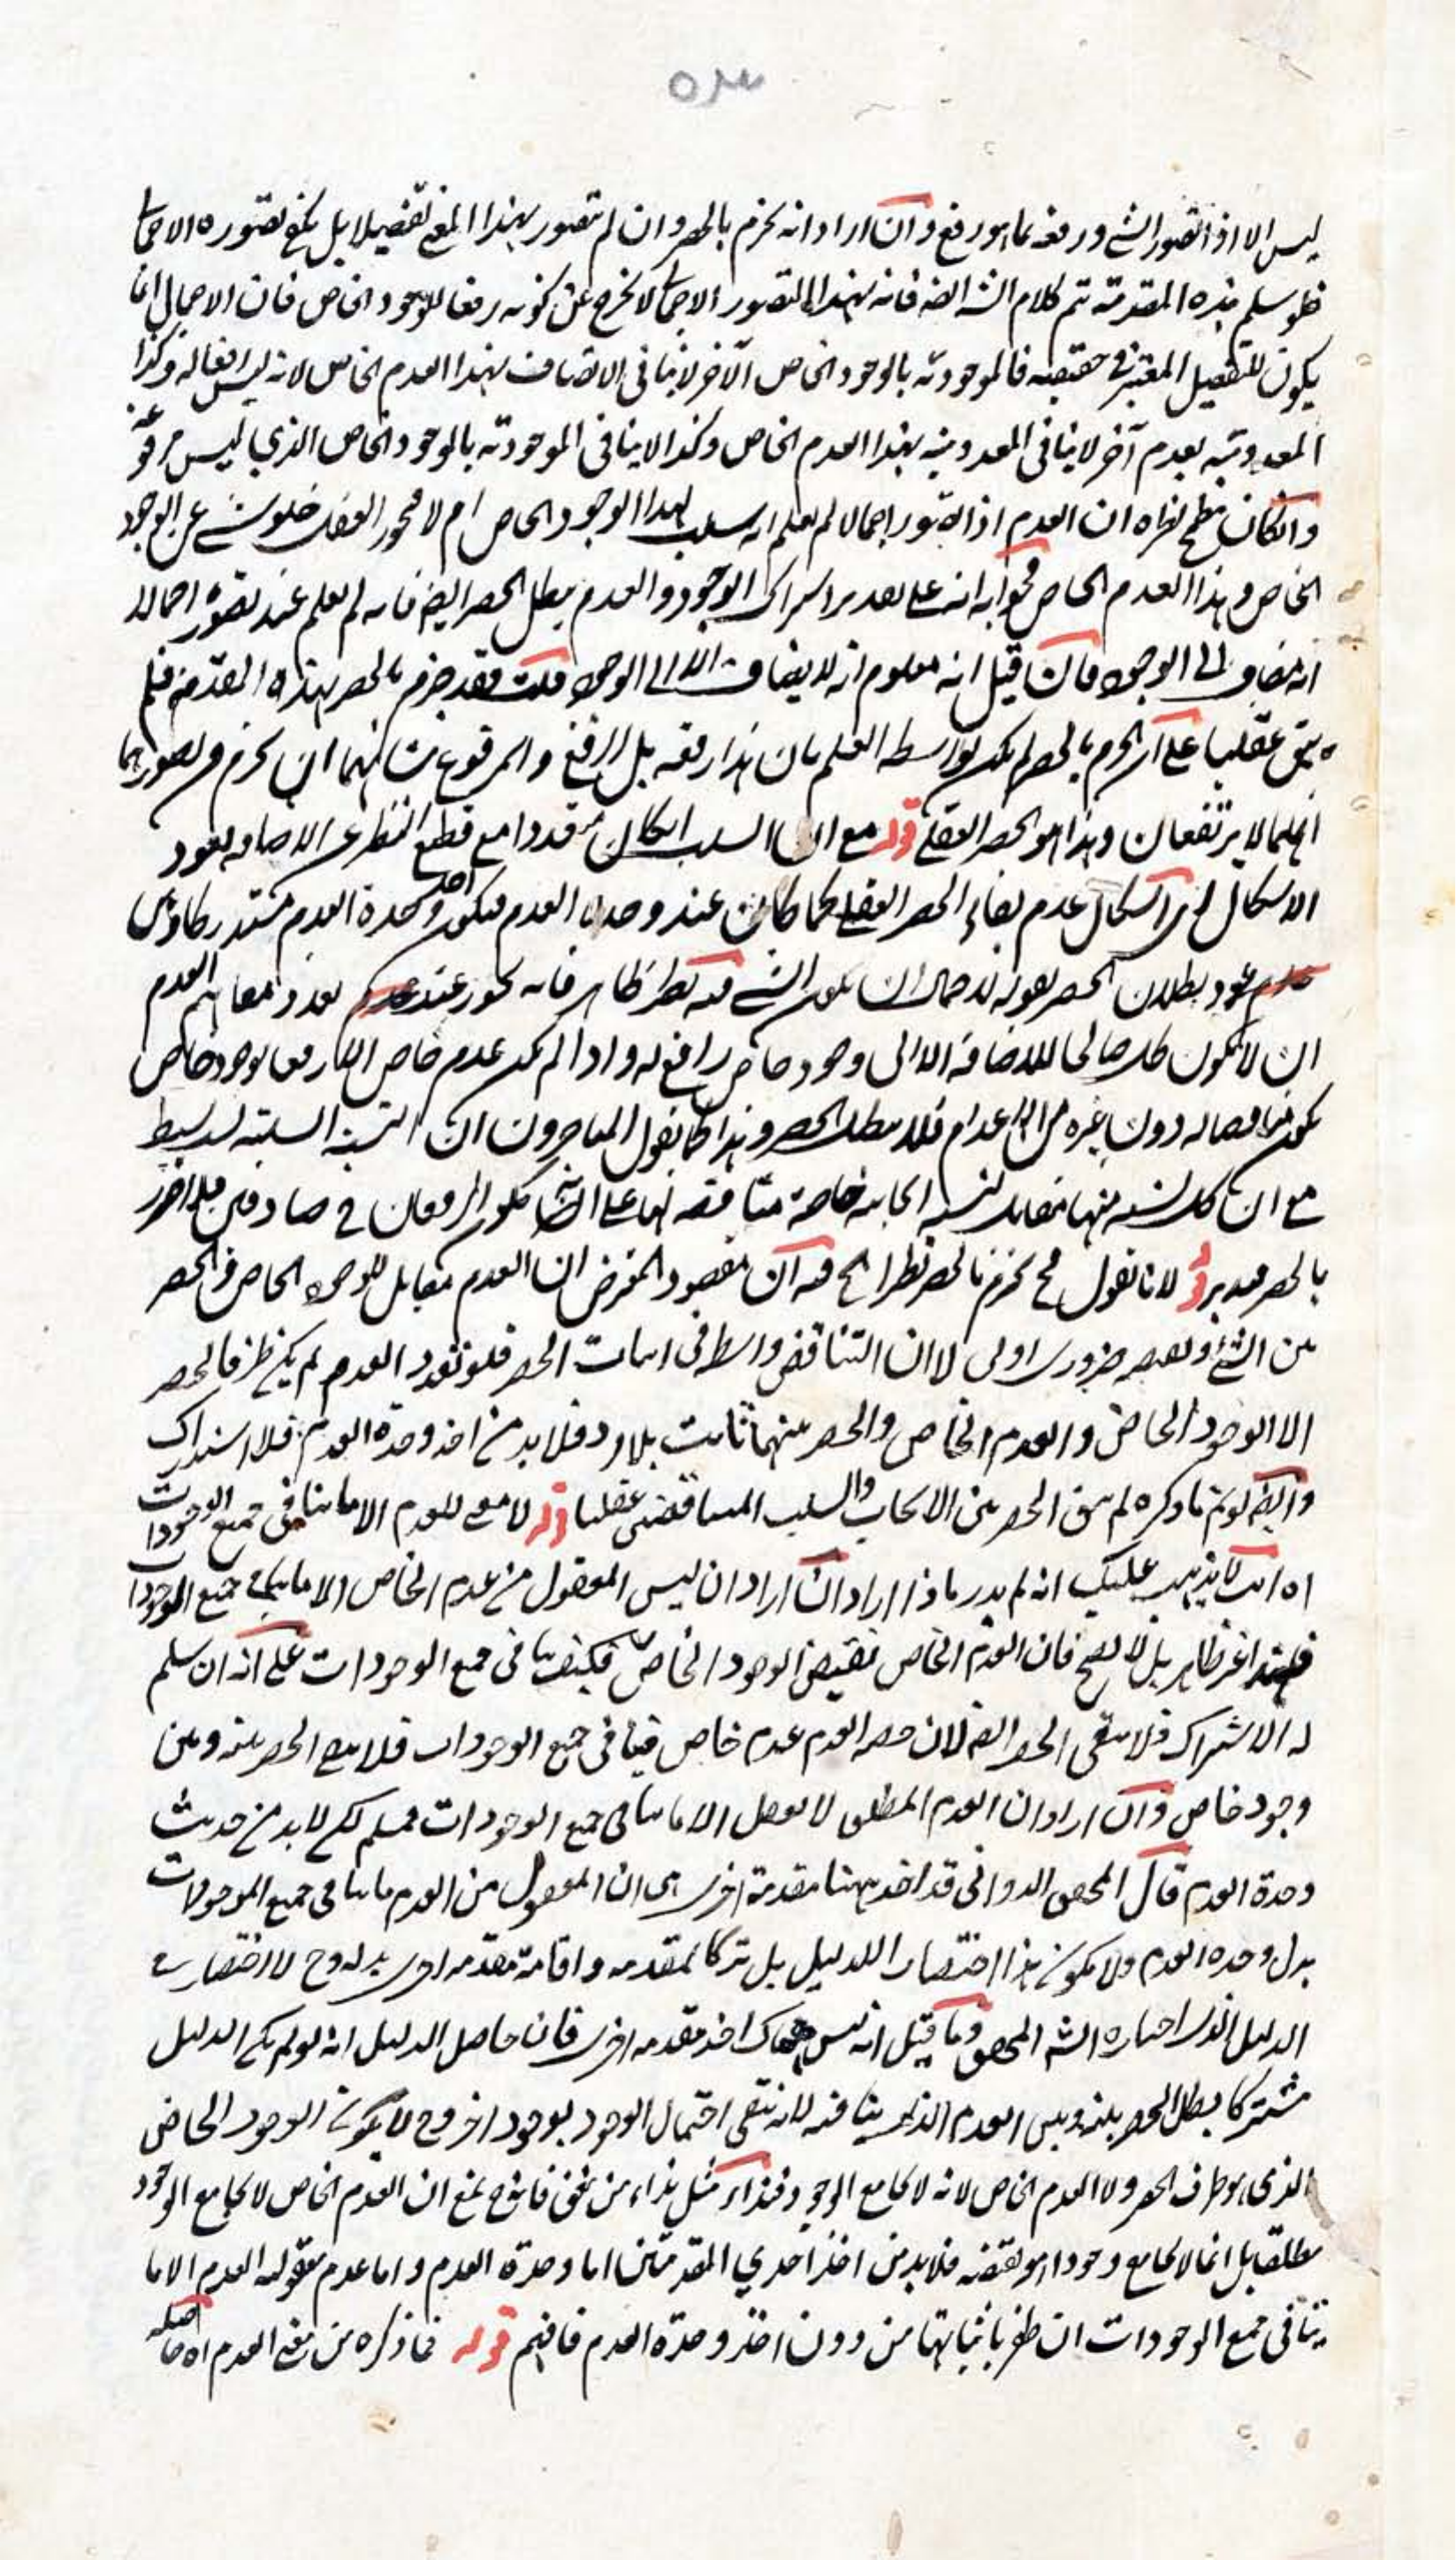 ليس الا اذا تصور الشئ ورفعه بما هو رفع وان اراد انه يجزم بالحصر وان لم يتصور بهذا المعنى تفصيلا بل يكفى تصوره الاجمالى
فلو سلم هذه المقدمة تم كلام الش ايضه فانه بهذا التصور الاجمالى لا يخرج عن كونه رفعا للوجود الخاص فان الاجمال انما
يكون للتفصيل المعتبر فى حقيقته فالموجودية بالوجود الخاص الآخر لا ينافى الاتصاف بهذا العدم الخاص لانه ليس رفعا له وكذا
المعدومية بعدم آخر لا ينافى المعدومية بهذا العدم الخاص وكذا لا ينافى الموجودية بالوجود الخاص الذي ليس
وان كان مطمح نظره ان العدم اذا تصور اجمالا لم يعلم انه سلب لهذا الوجود الخاص ام لا فيجوز العقل خلو شئ عن الوجود
الخاص وهذا العدم الخاص فجوابه انه على تقدير اشتراك الوجود والعدم يبطل الحصر ايضه فانه لم يعلم عند تصوره اجمالا
انه مضاف الى الوجود فان قيل انه معلوم انه لا يضاف الا الى الوجود قلت فقد جزم بالحصر بهذه المقدمة فلم
يبق عقليا على ان الجزم بالحصر لم يكن بواسطة العلم بان هذا رفعه بل الرفع والمرفوع شانهما ان يجزم من تصورهما
انهما لا يرتفعان وهذا هو الحصر العقلى قوله مع ان السلب ان كان متعددا مع قطع النظر عن الاضافه يعود
الاشكال اى اشكال عدم بقاء الحصر العقلى كما كان عند وحدة العدم فيكون اخذ وحدة العدم مستدركا
عود بطلان الحصر بعونه لاحتمال ان يكون الشئ فيه نظر ظاهر فانه يجوز عند تعدد مفاهيم العدم
ان لا يكون كل صالحا للاضافة الا الى وجود خاص رافع له واذا لم يكن عدم خاص الا رفعا لوجود خاص
يكون مناقضا له دون غيره من الاعدام فلا يبطل الحصر وهذا كما يقول المتاخرون ان النسبة السلبية بسيط
مع ان كل نسبة منها مقابل لنسبة ايجابية خاصة مناقضة لها على انه يكون الرفعان فى صادقين فلا
بالحصر فتدبر قوله لانا نقول فح يجزم بالحصر نظرا الخ فيه ان مقصود المعترض ان العدم مقابل للوجود الخاص والحصر
بين الشئ ونقيضه ضرورى اولى لا ان التناقض واسطة فى اثبات الحصر فلو تعدد العدم لم يكن طرفا الحصر
الا الوجود الخاص والعدم الخاص والحصر بينهما ثابت بلا رد فلا بد من اخذ وحدة العدم فلا استدراك
وايضه لو تم ما ذكره لم يبق الحصر بين الايجاب والسلب المتناقضين عقليا قوله لا معنى للعدم الا ما ينافى جميع الوجودات
اه انت لا يذهب عليك انه لم يدر ماذا اراد ان اراد ان ليس المعقول من عدم الخاص الا ما ينافى جميع الوجودات
فهذا غير ظاهر بل لا يصح فان العدم الخاص نقيض الوجود الخاص فكيف ينافى جميع الوجودات على انه ان سلم
له الاشتراك فلا يبقى الحصر ايضه لان حصة العدم عدم خاص فينافى جميع الوجودات فلا يبقى الحصر بينه وبين
وجود خاص وان اراد ان العدم المطلق لا يعقل الا ما ينافى جميع الوجودات فمسلم لكن لا بد من حديث
وحدة العدم قال المحقق الدوانى قد اخذ ههنا مقدمة اخرى هى ان المعقول من العدم ما ينافى جميع الموجودات
بدل وحدة العدم ولا يكون هذا اختصارا للدليل بل تركا لمقدمه واقامة مقدمه اخرى بدله وح لا اختصار فى
الدليل الذى اختاره الش المحقق وما قيل انه ليس هناك اخذ مقدمه اخرى فان حاصل الدليل انه لو لم يكن الدليل
مشتركا يبطل الحصر بينه وبين العدم الذى ينافيه لانه يبقى احتمال الوجود بوجود اخر وح لا يكون الوجود الخاص
الذى هو طرف الحصر ولا العدم الخاص لانه لا يجامع الوجود فهذاء مثل هذاء من فانه ح يمنع ان العدم الخاص لا يجامع الوجود
مطلقا بل انما لا يجامع وجودا هو نقيضه فلا بد من اخذ احدي المقدمتين اما وحدة العدم واما عدم معقولية العدم الا ما
ينافى جميع الوجودات ان ظفر باثباتها من دون اخذ وحدة العدم فافهم قوله فما ذكره من معنى العدم اه حاصله